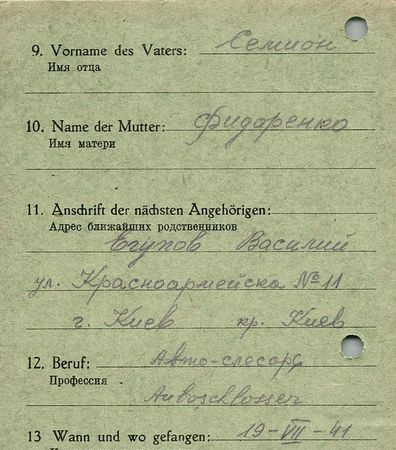 9. Vorname des Vaters: Семион
Имя отца
10. Name der Mutter: Фидоренко
Имя матери
11. Anschrift der nächsten Angehörigen:
Адрес ближайших родственников
Егупов Василий
ул. Красноармейска № 11
г. Киев кр. Киев
12. Beruf: Авто-слесарь
Профессия
Autoschlosser
13 Wann und wo gefangen: 19-VIII-41